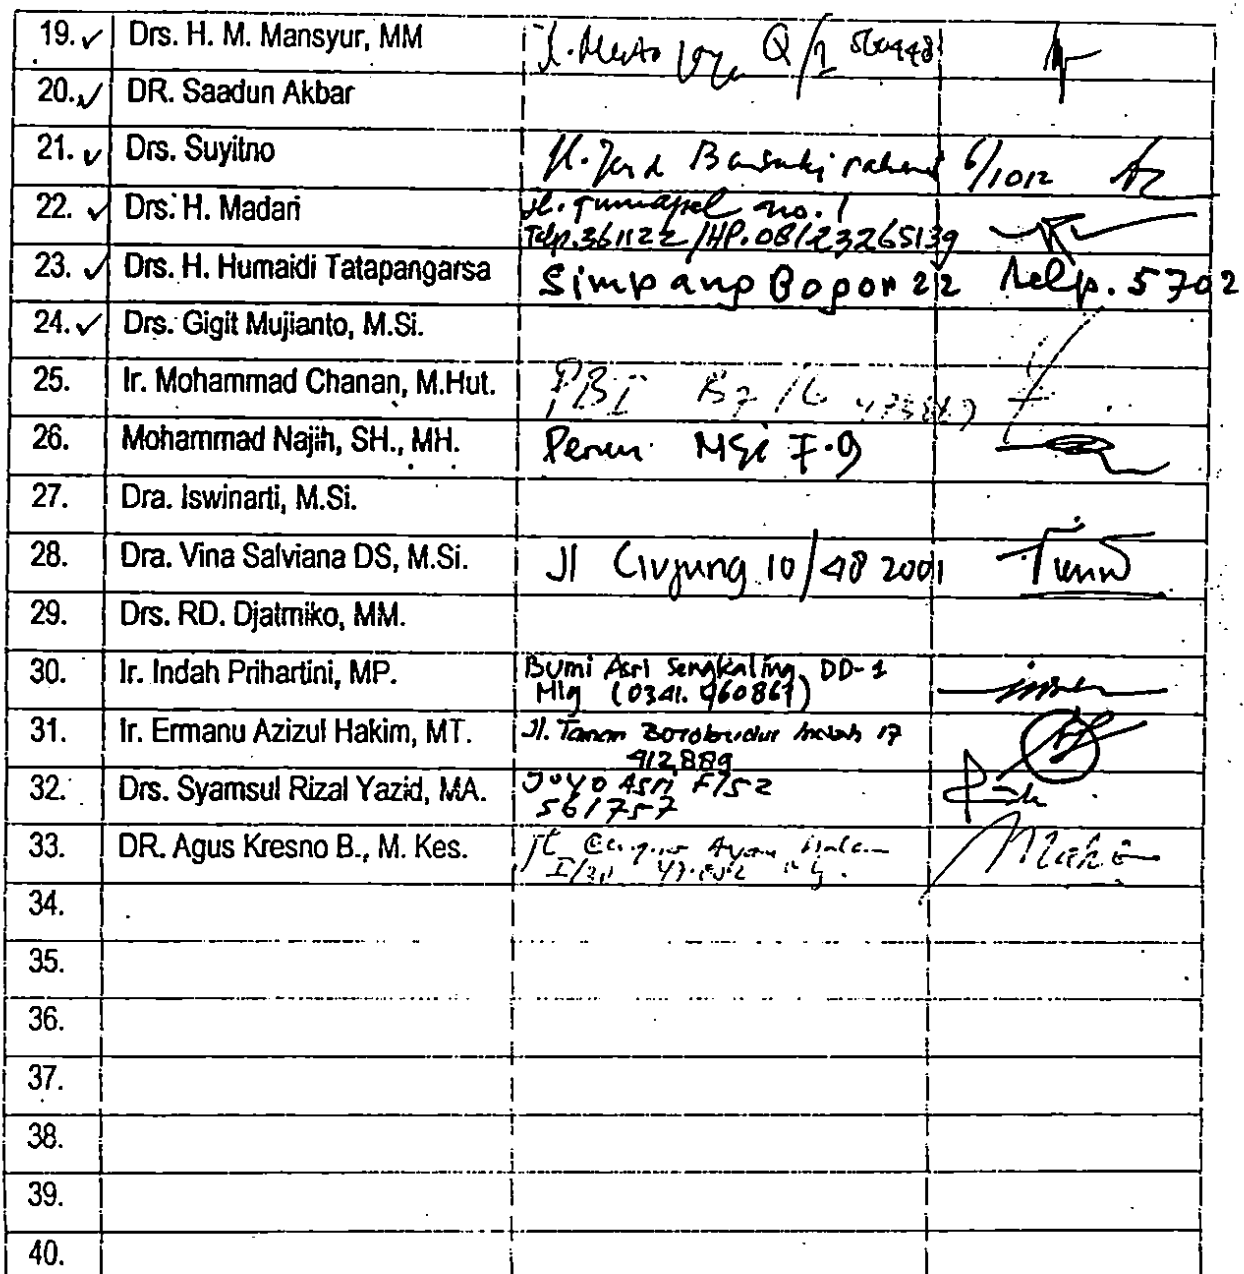 19. Drs. H. M. Mansyur, MM Q/2 560448
20. DR. Saadun Akbar
21. Drs. Suyitno Jl. Jend Basuki rahmad 6/1012
22. Drs. H. Madari Jl. Tumapel no. 1
Telp. 361122 / HP. 08123265139
23. Drs. H. Humaidi Tatapangarsa Simpang Bogor 22 Telp. 5702
24. Drs. Gigit Mujianto, M.Si.
25. Ir. Mohammad Chanan, M.Hut. PBI
26. Mohammad Najih, SH., MH. F-9
27. Dra. Iswinarti, M.Si.
28. Dra. Vina Salviana DS, M.Si. Jl 10/48 2001
29. Drs. RD. Djatmiko, MM.
30. Ir. Indah Prihartini, MP. Bumi Asri Sengkaling DD-1
Mlg (0341. 460867)
31. Ir. Ermanu Azizul Hakim, MT. Jl. Taman Borobudur Indah 17
412889
32. Drs. Syamsul Rizal Yazid, MA. Joyo Asri F/52
561757
33. DR. Agus Kresno B., M. Kes.
34.
35.
36.
37.
38.
39.
40.